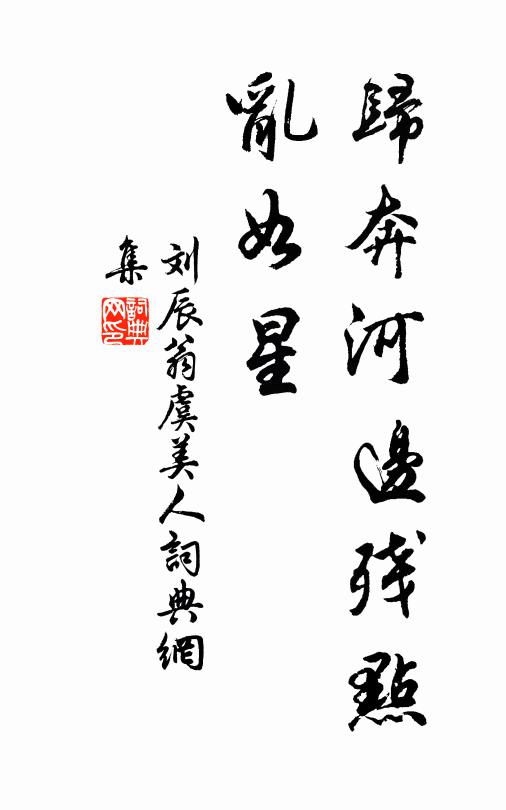 歸奔河邊残點
亂如星
刘辰翁虞美人詞典網
集
詞典
网印